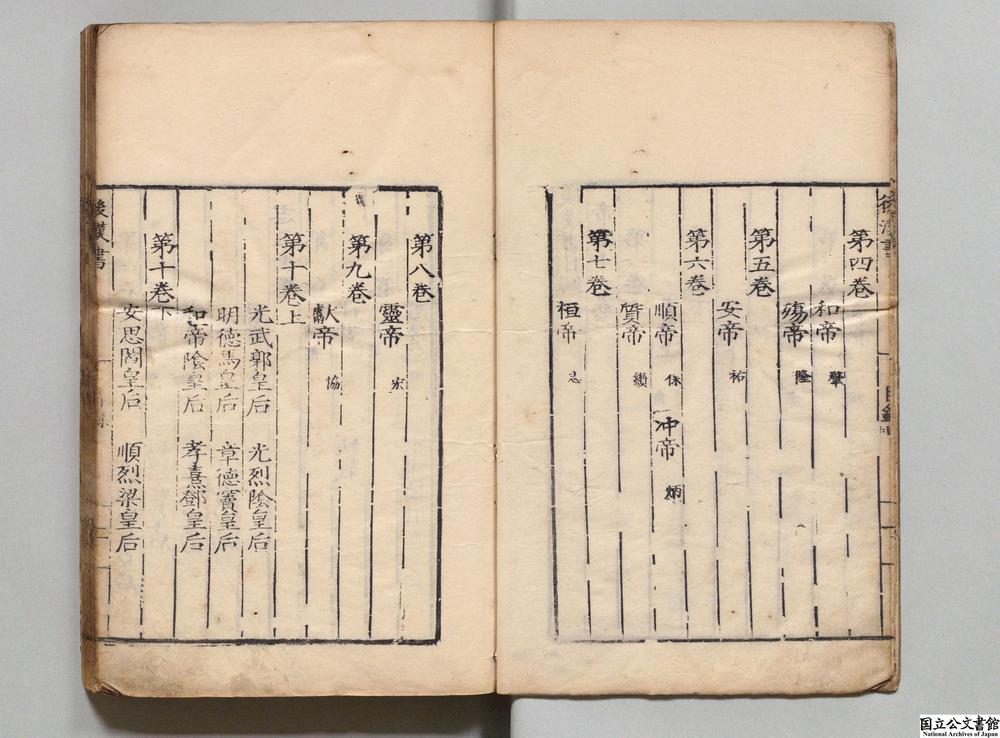 後漢書
目錄
第四卷
和帝 肇
殤帝 隆
第五卷
安帝 祐
第六卷
順帝 保 冲帝 炳
質帝 纘
第七卷
桓帝 志
第八卷
靈帝 宏
第九卷
獻帝 協
第十卷上
光武郭皇后 光烈陰皇后
明德馬皇后 章德竇皇后
和帝陰皇后 孝熹鄧皇后
第十卷下
安思閻皇后 順烈梁皇后
後漢書
国立公文書館
National Archives of Japan